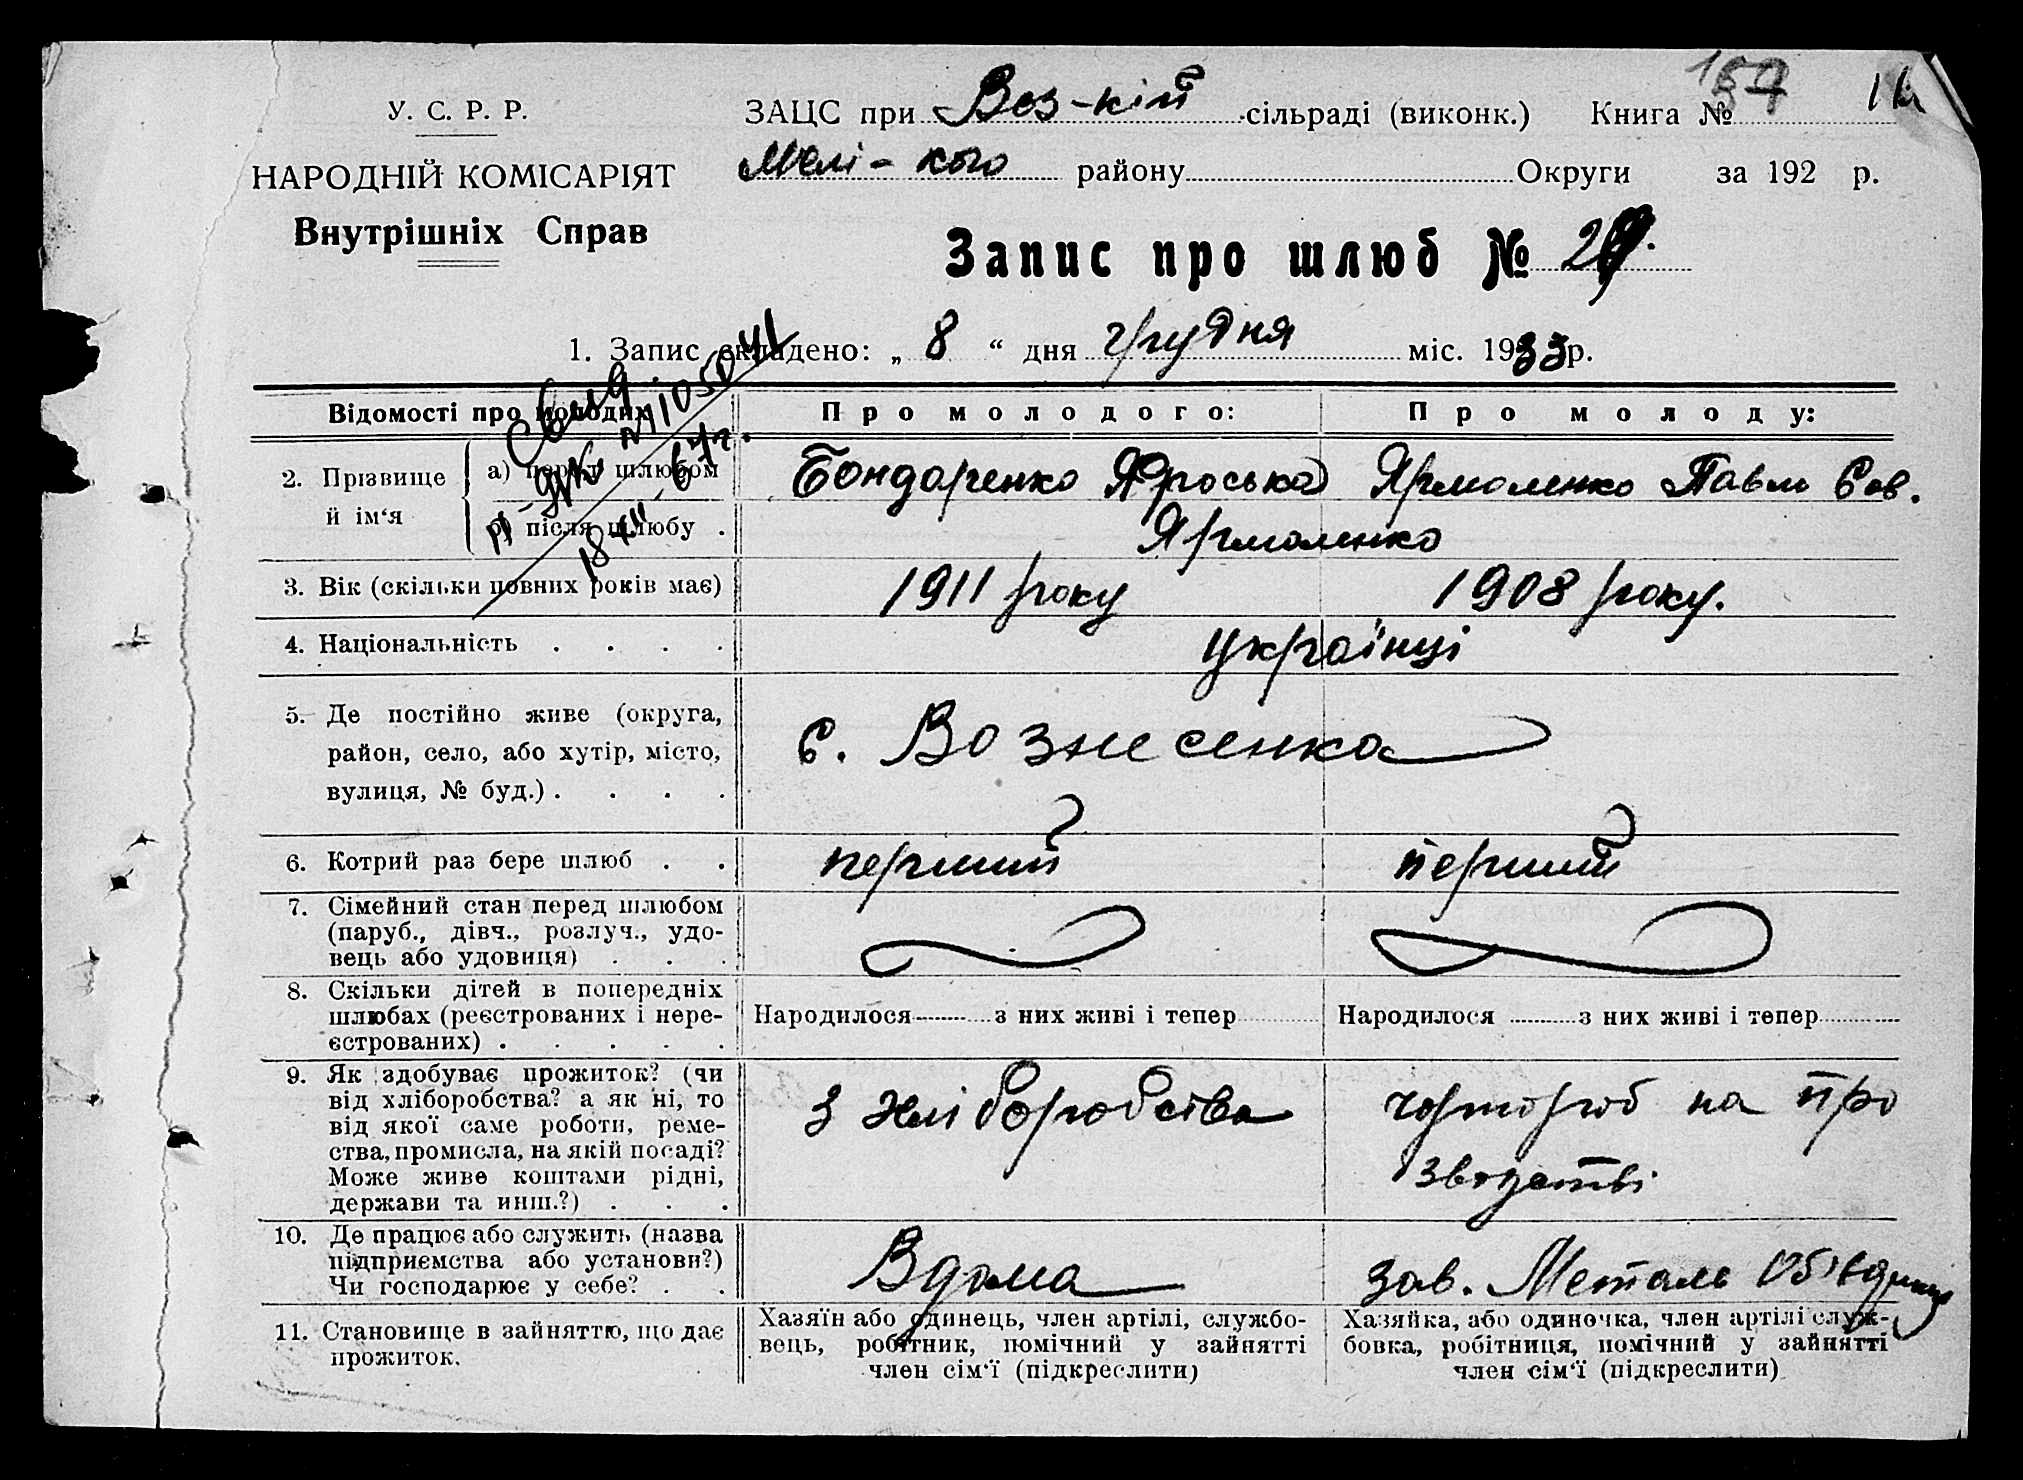 157 11
У. С. Р. Р. ЗАЦС при Воз-кій сільраді (виконк.) Книга №
НАРОДНІЙ КОМІСАРІЯТ Мелі-кого району Округи за 192 р.
Внутрішніх Справ
Запис про шлюб № 29.
1. Запис складено: „ 8 “ дня грудня міс. 1933 р.
Відомості про молодих Про молодого: Про молоду:
2. Прізвище й ім‘я а) перед шлюбом Бондаренко Яроська Ярмоленко Павло Сав.
б) після шлюбу . Ярмоленко
3. Вік (скільки повних років має) 1911 року 1908 року.
4. Національність . . . . українці
5. Де постійно живе (округа,
район, село, або хутір, місто, с. Вознесенка
вулиця, № буд.) . . . .
6. Котрий раз бере шлюб . . перший перший
7. Сімейний стан перед шлюбом
(паруб., дівч., розлуч., удо-
вець або удовиця) . . .
8. Скільки дітей в попередніх
шлюбах (реєстрованих і нере- Народилося з них живі і тепер Народилося з них живі і тепер
єстрованих) . . . . .
9. Як здобуває прожиток? (чи
від хліборобства? а як ні, то з хліборобства чорнороб на про
від якої саме роботи, реме-
ства, промисла, на якій посаді? зводстві
Може живе коштами рідні,
держави та инш.?) . . .
10. Де працює або служить (назва
підприємства або установи?) Вдома зав. Металь
Чи господарює у себе? . .
11. Становище в зайняттю, що дає
прожиток.
Хазяїн або одинець, член артілі, службо-
вець, робітник, помічний у зайнятті
член сім‘ї (підкреслити)
Хазяйка, або одиночка, член артілі служ-
бовка, робітниця, помічний у зайнятті
член сім‘ї (підкреслити)